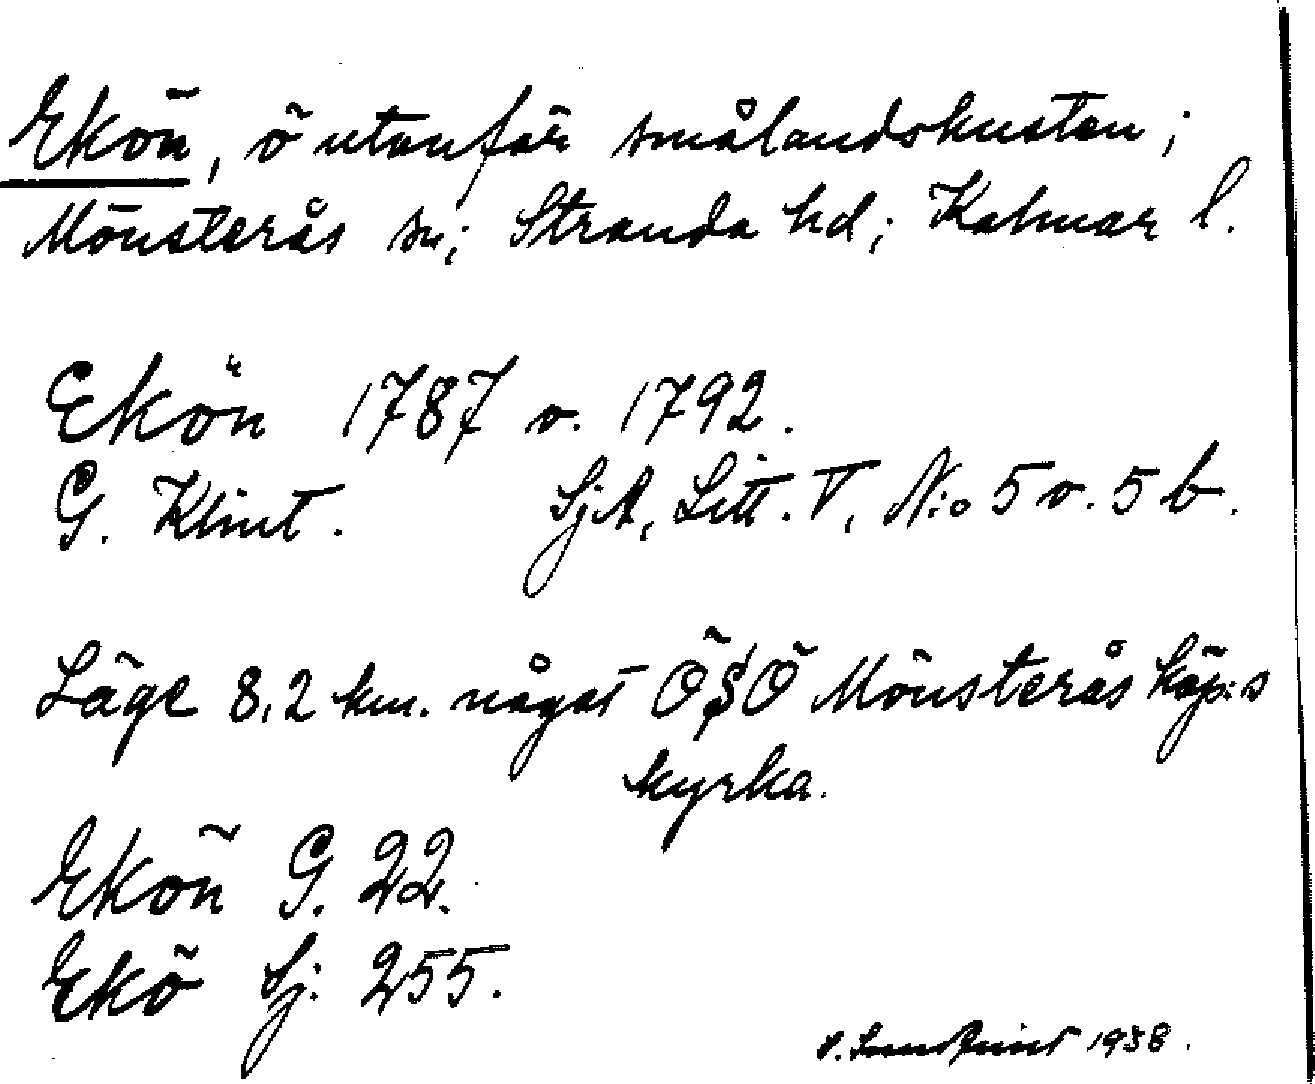 Ekön, ö utanför smålandskusten;
Mönsterås sn; Stranda hd; Kalmar l.
Ekön 1787 o. 1792.
G. Klint. SjA, Litt. V, N:o 5 o. 5 b.
Läge 8,2 km. något ÖSÖ Mönsterås köp:s
kyrka.
Ekön G. 22.
Ekö Sj. 255.
1938.